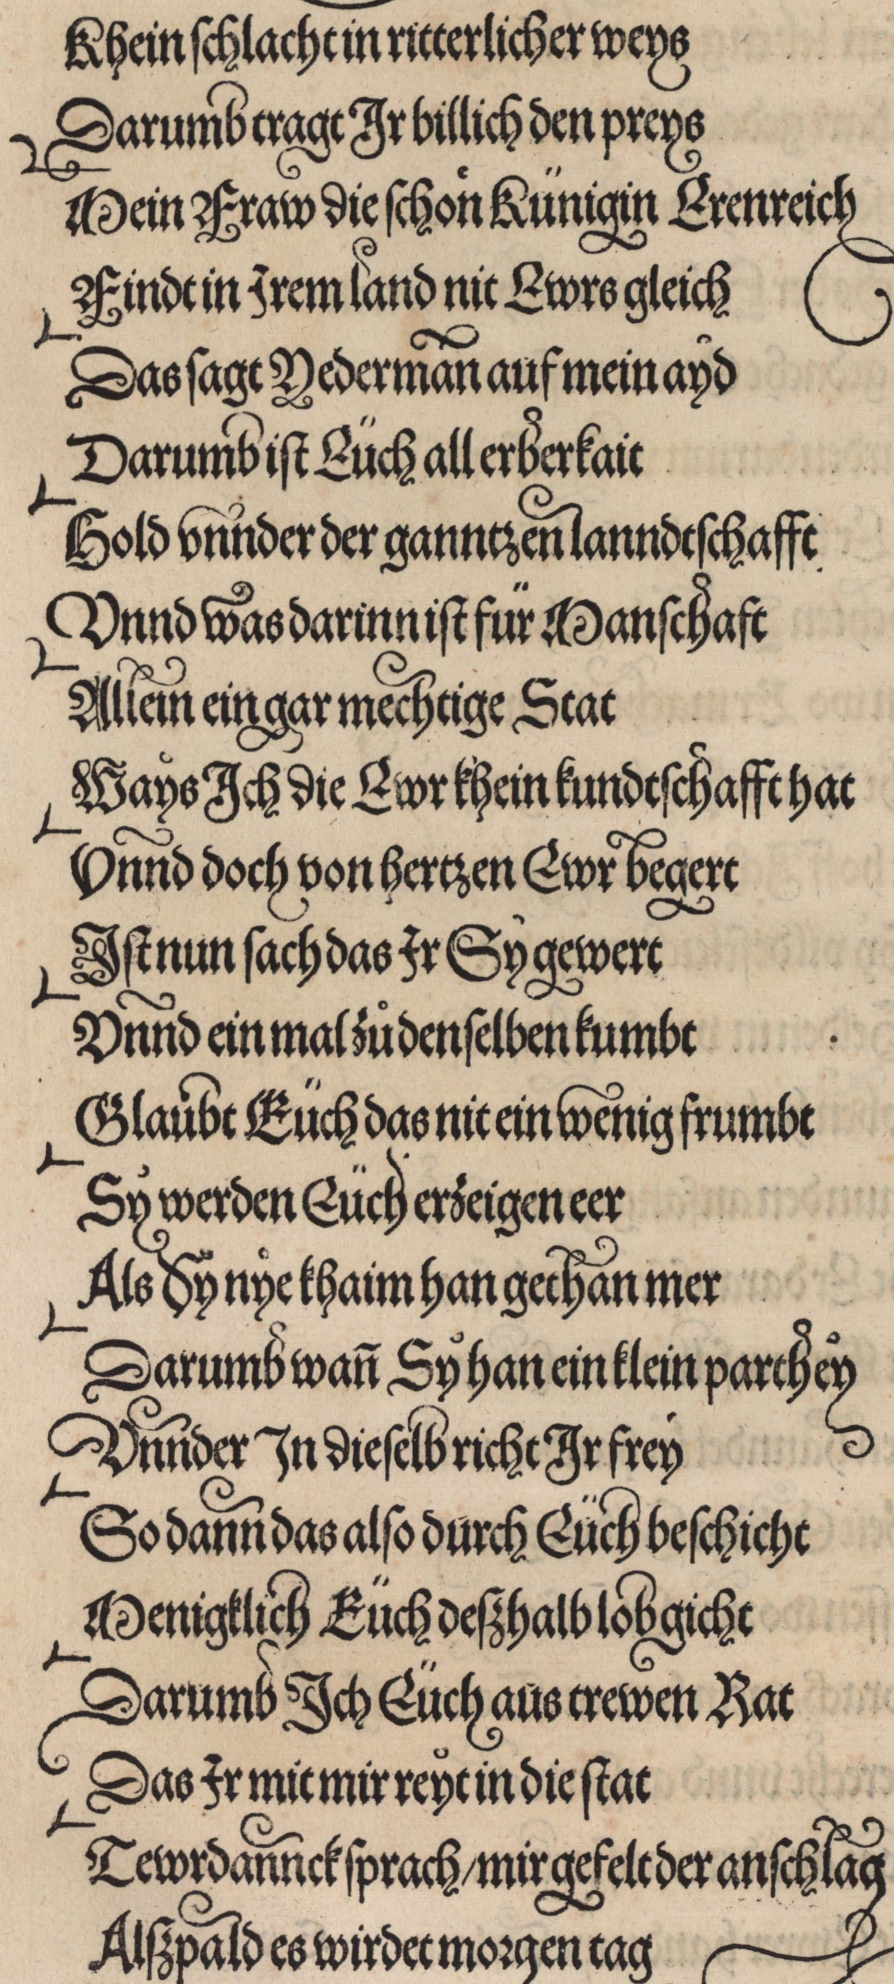 Khein schlacht in ritterlicher weys
Darumb tragt Ir billich den preys
Mein Fraw die schön Künigin Erenreich
Findt in Irem land nit Ewrs gleich
Das sagt Yederman auf mein ayd
Darumb ist Eüch all erberkait
Hold vnnder der ganntzen lanndtschafft
Vnnd was darinn ist für Manschaft
Allein ein gar mechtige Stat
Ways Ich die Ewr khein kundtschafft hat
Vnnd doch von hertzen Ewr begert
Ist nun sach das Ir Sy gewert
Vnnd ein mal zů denselben kumbt
Glaubt Eüch das nit ein wenig frumbt
Sy werden Eüch erzeigen eer
Als Sy nye khaim han gethan mer
Darumb wañ Sy han ein klein parthey
Vnnder In dieselb richt Ir frey
So dann das also durch Eüch beschicht
Menigklich Eüch deßhalb lob gicht
Darumb Ich Eüch aus trewen Rat
Das Ir mit mir reyt in die stat
Tewrdannck sprach/mir gefelt der anschlag
Alßpald es wirdet morgen tag